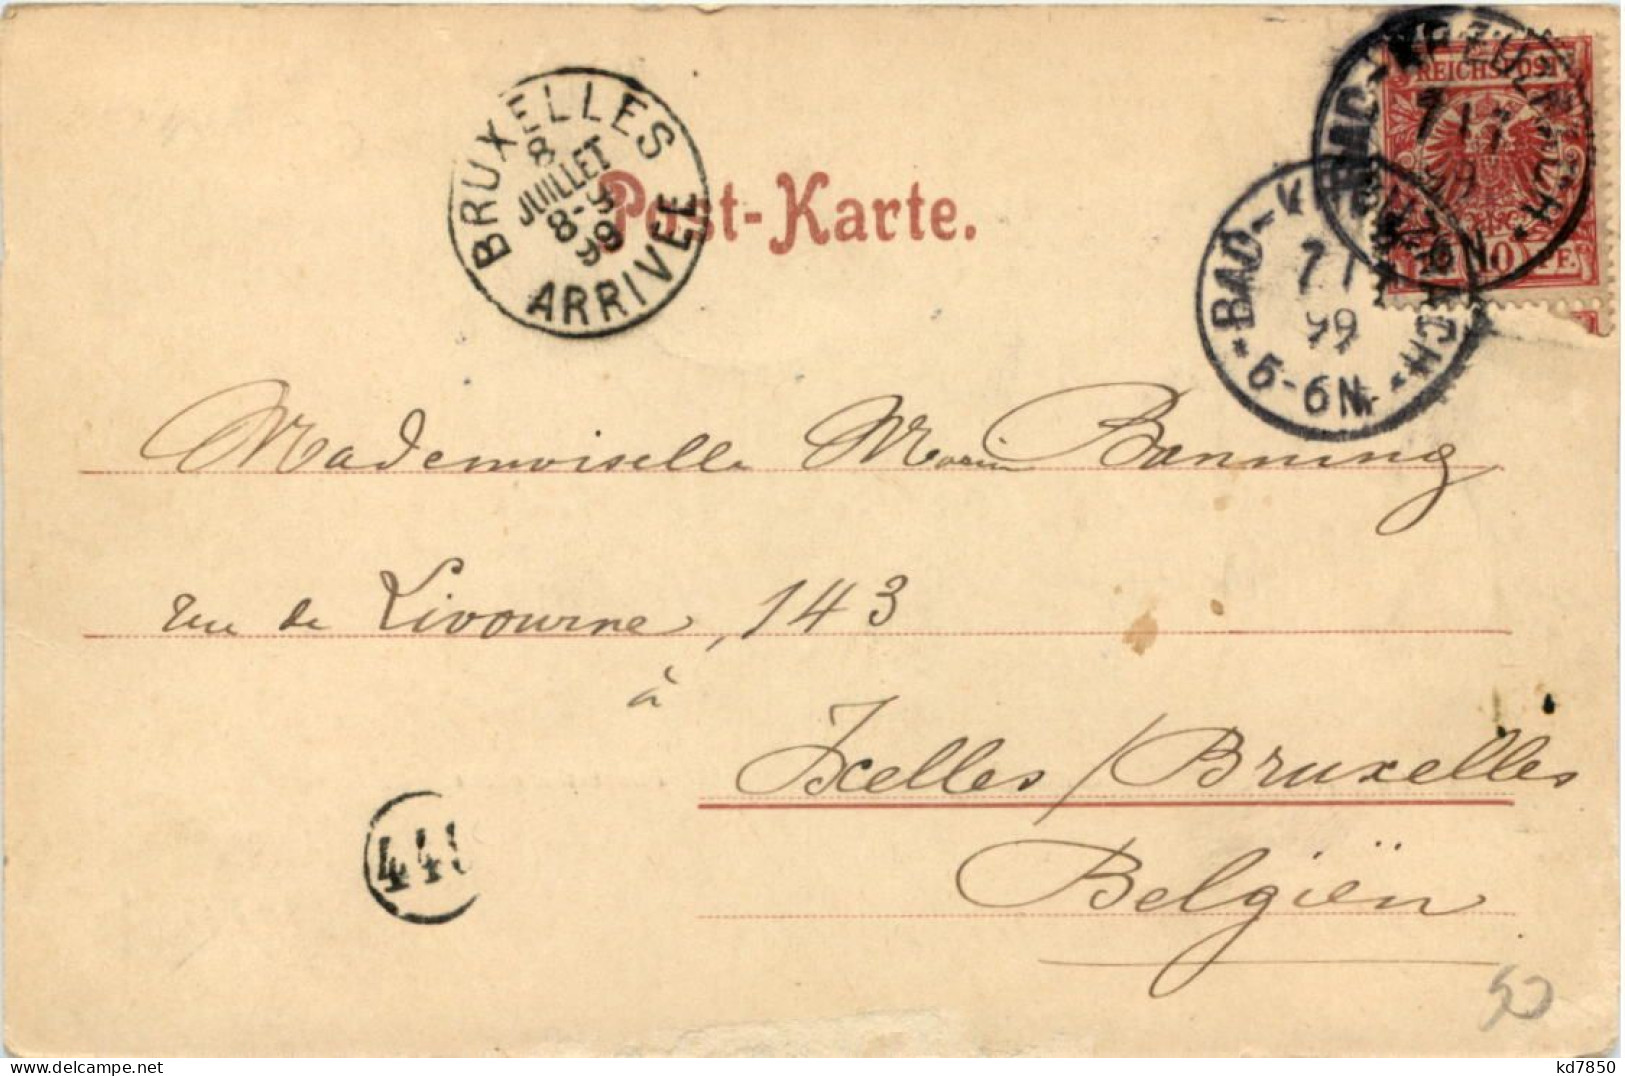 BRUXELLES
8
JUILLET
8-9
99
ARRIVEE
Post-Karte.
REICHSPOST
10 PF.
BAD-KREUZNACH
7 7
99
6 N
BAD-KREUZNACH
7 7
99
5-6N.
Mademoiselle Maria Banning
rue de Livourne, 143
à
Ixelles/Bruxelles
Belgiën
44
50
kd7850